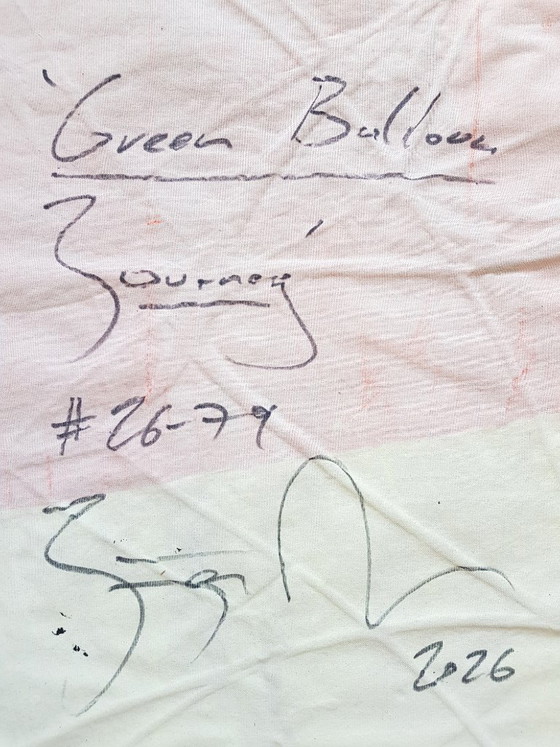 'Green Balloon
Journey'
#26-79
2026